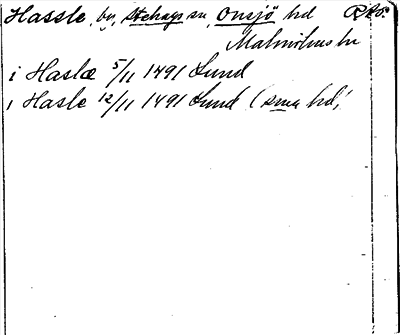 Hassle, by, Stehags sn, Onsjö hd RAp.
Malmöhus ln
i Haslæ 5/11 1491 Lund
i Hasle 12/11 1491 Lund (sma hd)